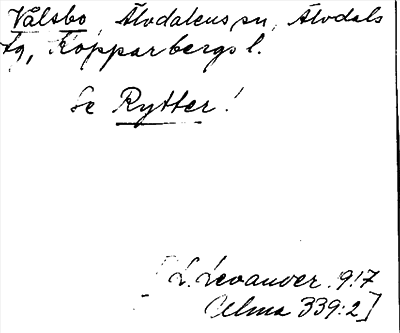 Vålsbo, Älvdalens sn, Älvdals
tg, Kopparbergs l.
Se Rytter!
[L. Levander 1917
Ulma 339:2]